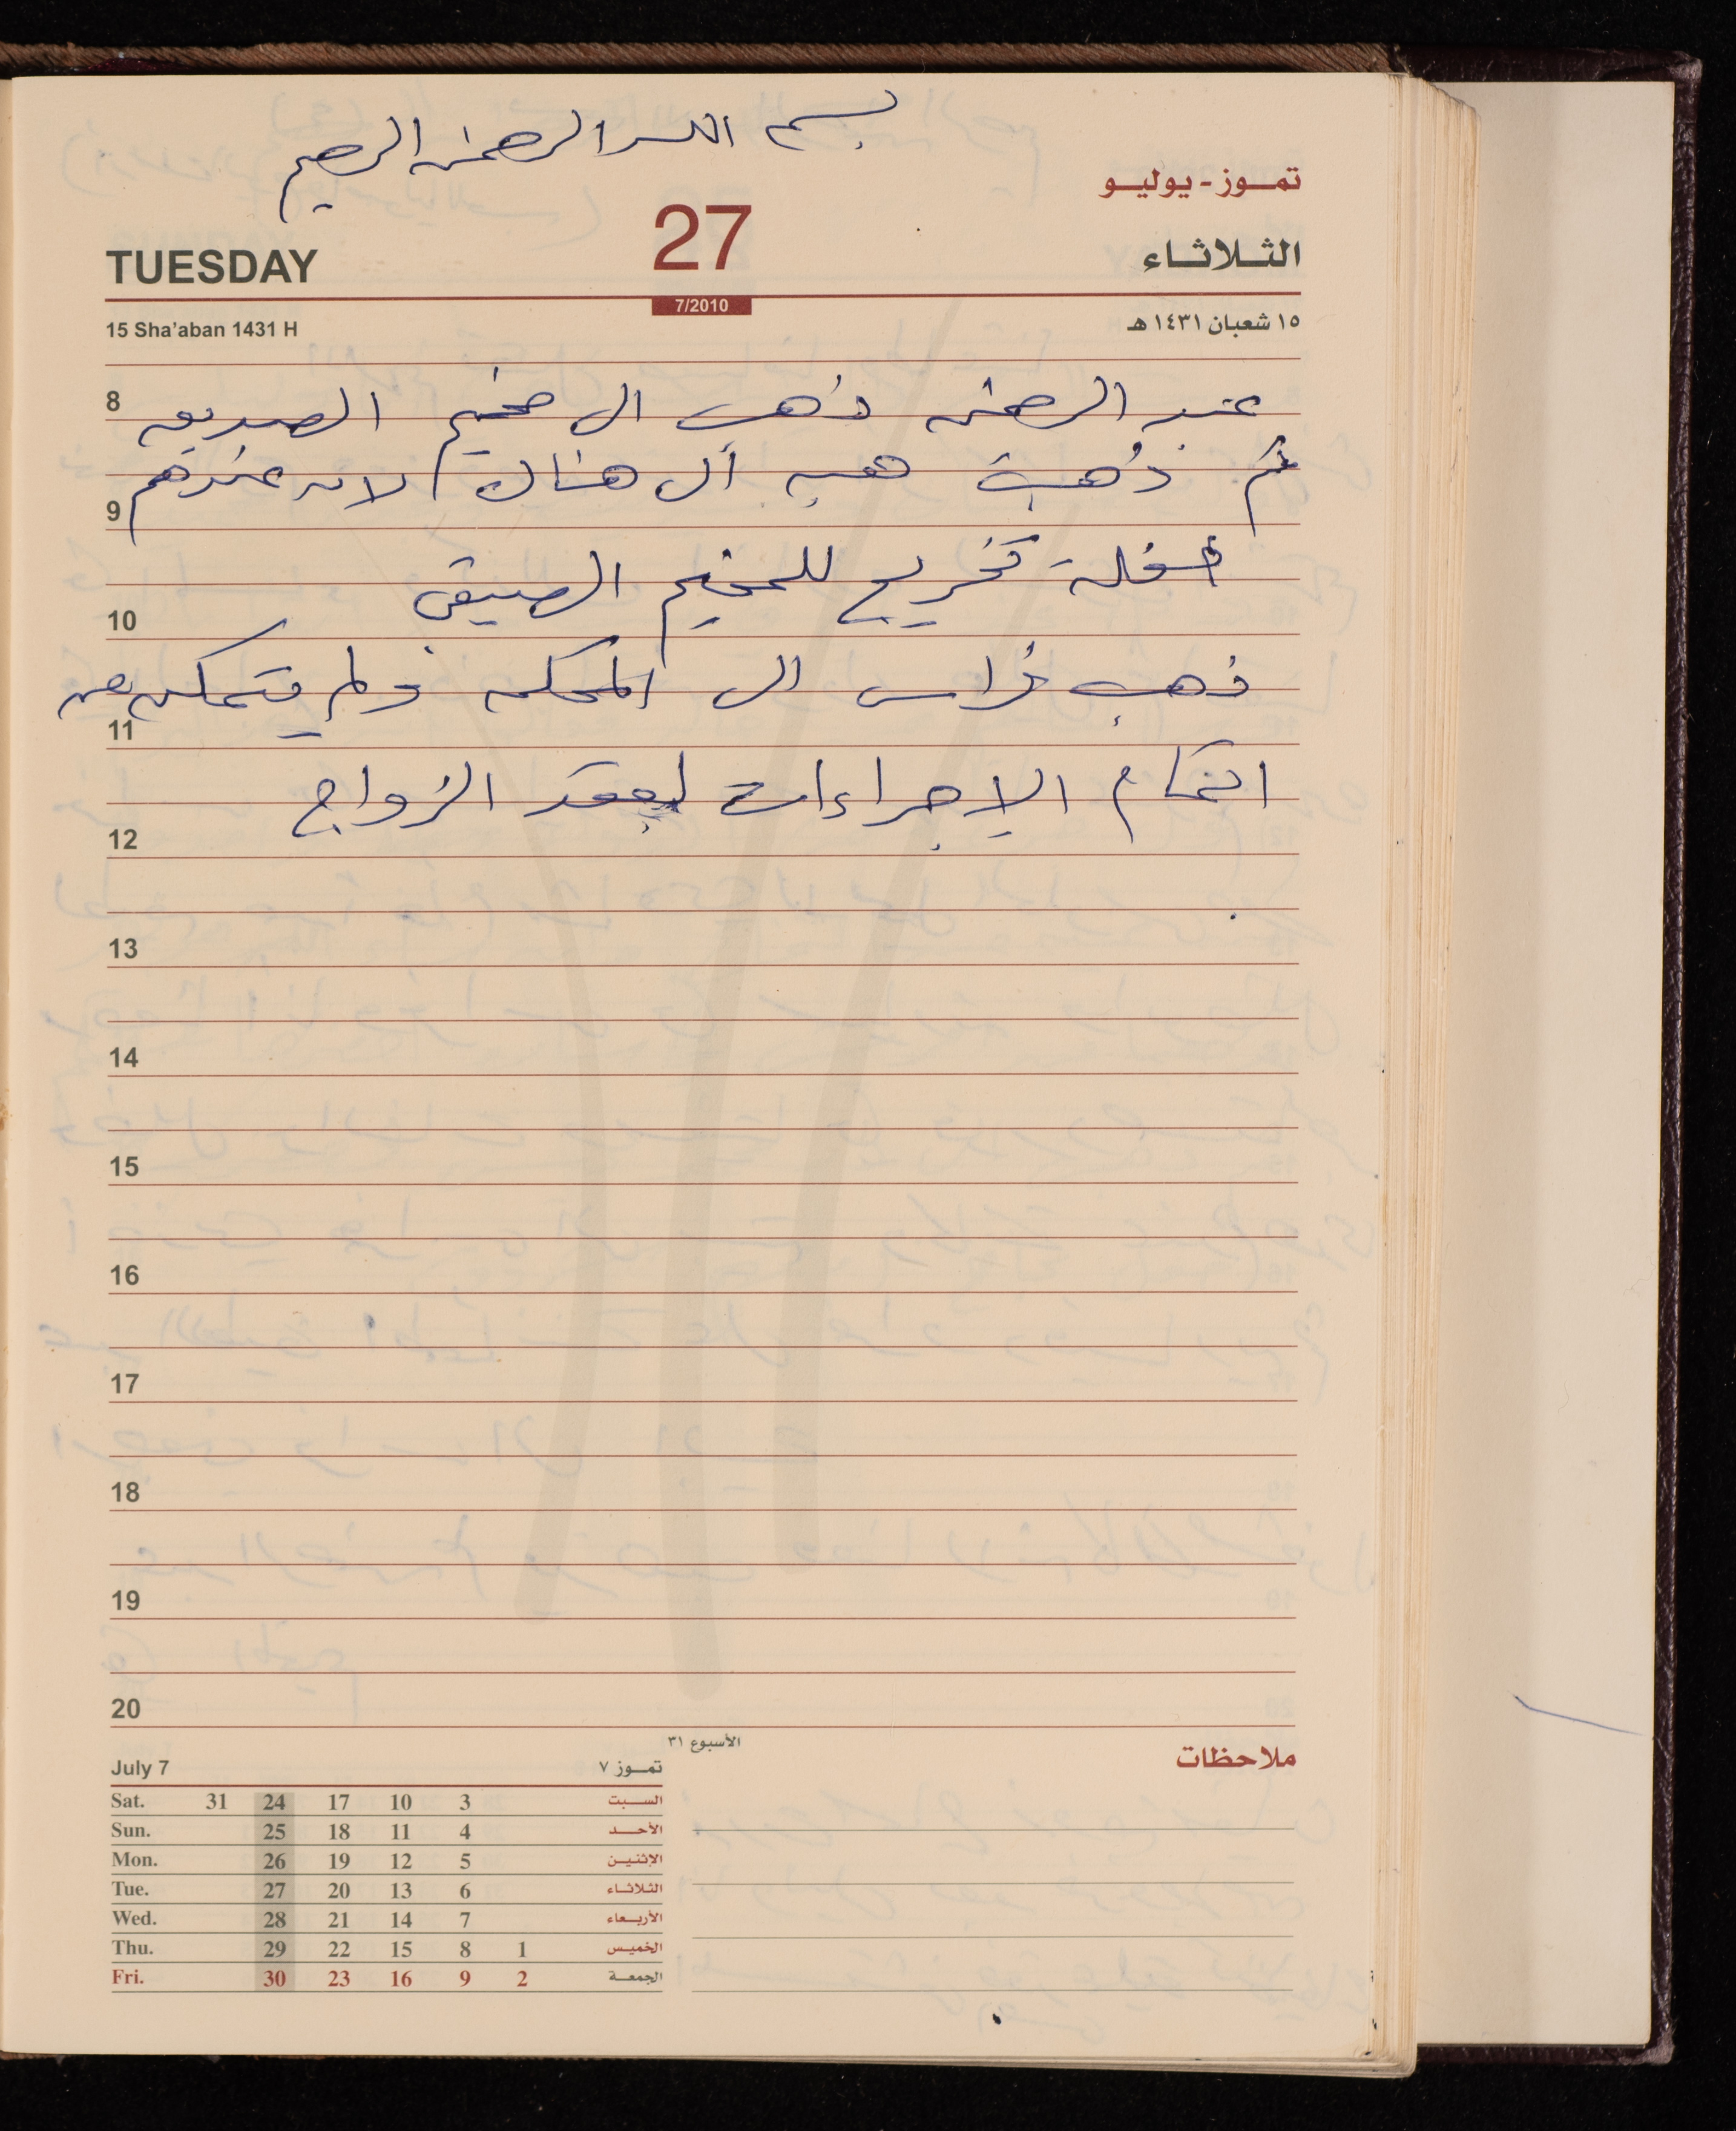 بسم الله الرحمن الرحيم
تموز - يوليو
TUESDAY 27 الثلاثاء
7/2010
15 Sha'aban 1431 H ١٥ شعبان ١٤٣١ هـ
8 عبد الرحمن ذهب الى مخيم الصديق
ثم ذهبت هبه الى هناك لان عندهم
9
حفلة تخريج للمخيم الصيفي
10
ذهب فراس الى المحكمه ولم يتمكن من
11
اتمام الإجراءات لعقد الزواج
12
13
14
15
16
17
18
19
20
الأسبوع ٣١
ملاحظات
July 7 تموز ٧
Sat. 31 24 17 10 3 السبت
Sun. 25 18 11 4 الأحد
Mon. 26 19 12 5 الإثنين
Tue. 27 20 13 6 الثلاثاء
Wed. 28 21 14 7 الأربعاء
Thu. 29 22 15 8 1 الخميس
Fri. 30 23 16 9 2 الجمعة